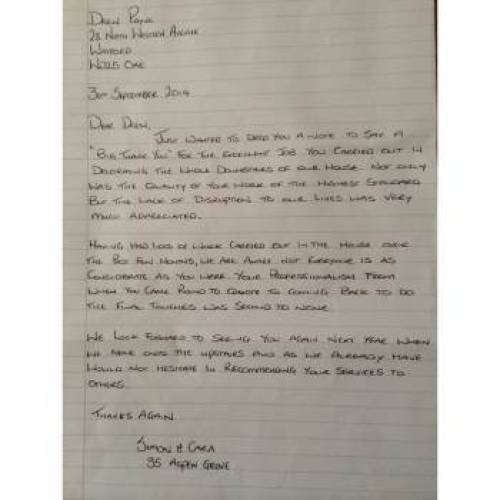 Drew Payne
28 North Western Avenue
Watford
WD25 0AE
30th September 2014
Dear Drew,
Just wanted to drop you a note to say a
"Big Thank You" for the excellent job you carried out in
decorating the whole downstairs of our house. Not only
was the quality of your work of the highest standard
but the lack of disruption to our lives was very
much appreciated.
Having had lots of work carried out in the house over
the past few months, we are aware not everyone is as
considerate as you were. Your professionalism from
when you came round to quote to coming back to do
the final touches was second to none.
We look forward to seeing you again next year when
we move onto the upstairs and as we already have
would not hesitate in recommending your services to
others.
Thanks again.
Simon & Cara
35 Aspen Grove